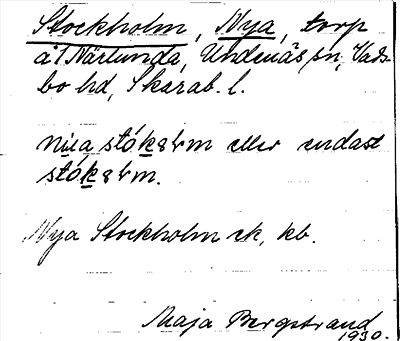 Stockholm, Nya, torp
å Närlunda, Undenäs sn, Vads-
bo hd, Skarab. l.
eller endast
Nya Stockholm ek, kb.
Maja Bergstrand
1930.